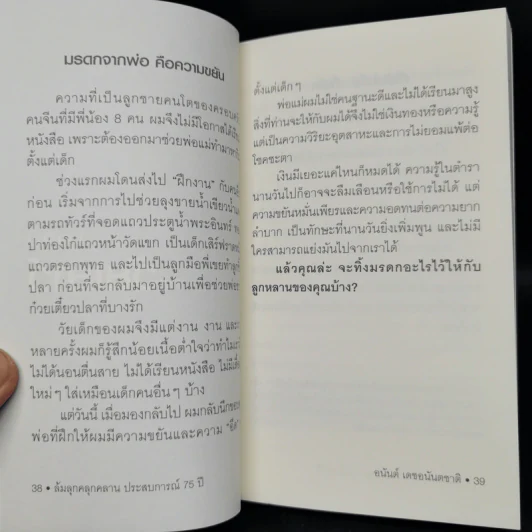 มรดกจากพ่อ คือความขยัน
ความที่เป็นลูกชายคนโตของครอบครัว
คนจีนที่มีพี่น้อง 8 คน ผมจึงไม่มีโอกาสได้เรียน
หนังสือ เพราะต้องออกมาช่วยพ่อแม่ทำมาหากิน
ตั้งแต่เด็ก
ช่วงแรกผมโดนส่งไป "ฝึกงาน" กับคน
ก่อน เริ่มจากการไปช่วยลุงขายน้ำเขียวน้ำ
ตามรถทัวร์ที่จอดแถวประตูน้ำพระอินทร์
ปาท่องโก๋แถวหน้าวัดแขก เป็นเด็กเสิร์ฟราดห
แถวตรอกพุทธ และไปเป็นลูกมือพี่เขยทำลูกชิ้น
ปลา ก่อนที่จะกลับมาอยู่บ้านเพื่อช่วยพ่อ
ก๋วยเตี๋ยวปลาที่บางรัก
วัยเด็กของผมจึงมีแต่งาน งาน และ
หลายครั้งผมก็รู้สึกน้อยเนื้อต่ำใจว่าทำไมเรา
ไม่ได้นอนตื่นสาย ไม่ได้เรียนหนังสือ ไม่มีเสื้อ
ใหม่ๆ ใส่เหมือนเด็กคนอื่นๆ บ้าง
แต่วันนี้ เมื่อมองกลับไป ผมกลับนึกขอบ
พ่อที่ฝึกให้ผมมีความขยันและความ "อึด"
38 • ล้มลุกคลุกคลาน ประสบการณ์ 75 ปี
ตั้งแต่เด็กๆ
พ่อแม่ผมไม่ใช่คนฐานะดีและไม่ได้เรียนมาสูง
สิ่งที่ท่านจะให้กับผมได้จึงไม่ใช่เงินทองหรือความรู้
แต่เป็นความวิริยะอุตสาหะและการไม่ยอมแพ้ต่อ
โชคชะตา
เงินมีเยอะแค่ไหนก็หมดได้ ความรู้ในตำรา
นานวันไปก็อาจจะลืมเลือนหรือใช้การไม่ได้ แต่
ความขยันหมั่นเพียรและความอดทนต่อความยาก
ลำบาก เป็นทักษะที่นานวันยิ่งเพิ่มพูน และไม่มี
ใครสามารถแย่งมันไปจากเราได้
แล้วคุณล่ะ จะทิ้งมรดกอะไรไว้ให้กับ
ลูกหลานของคุณบ้าง?
อนันต์ เดชอนันตชาติ • 39